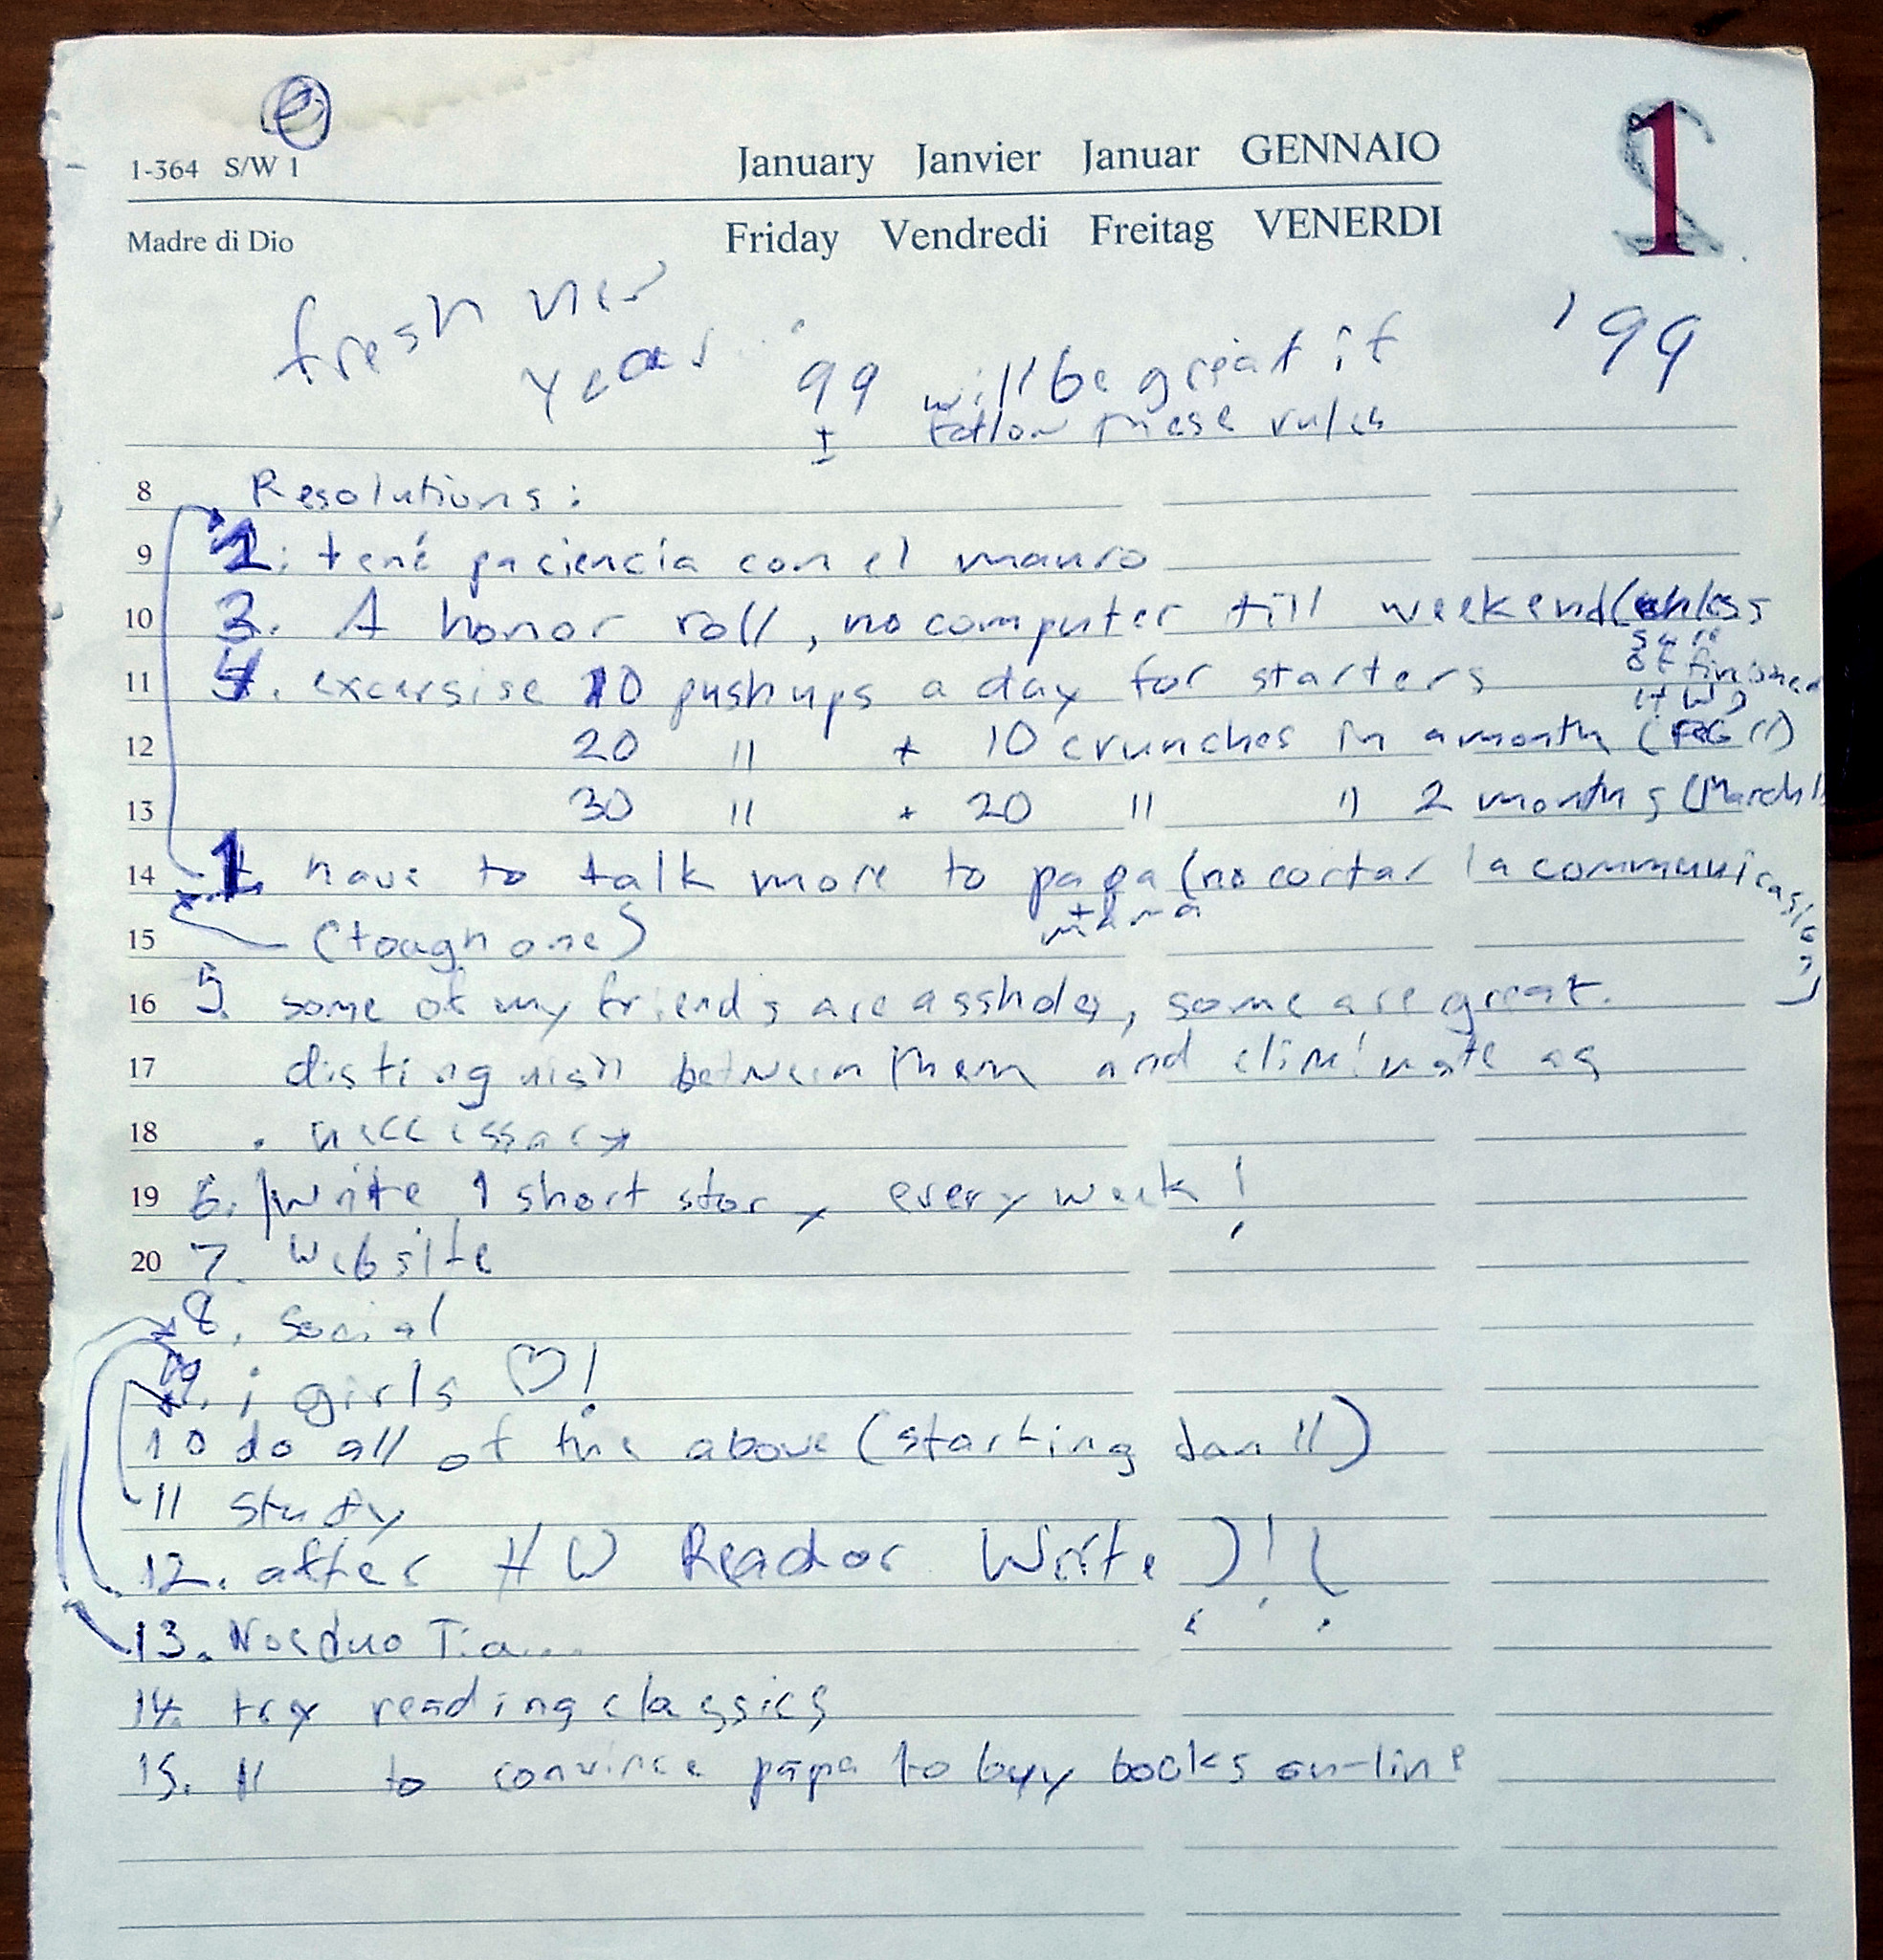 e
1-364 S/W 1
January Janvier Januar GENNAIO
1
Madre di Dio
Friday Vendredi Freitag VENERDI
fresh new
year
'99 will be great if
'99
I follow these rules
8 Resolutions:
9 2. tené paciencia con el mauro
10 3. A honor roll, no computer till weekend (unless
finished
11 4. excersise 10 pushups a day for starters
12 20 " + 10 crunches in a month (FEB 1)
13 30 " + 20 " " 2 months (March 1)
14 1 have to talk more to papa (no cortar la communicasion)
+ mama
15 (tough one)
16 5. some of my friends are assholes, some are great.
17 distinguish between them and eliminate as
18 neccessary
19 6. write 1 short story every week!
20 7. website
8. social
9. ¡ girls ♡!
10 do all of the above (starting Jan 11)
11 study
12. after HW Read or Write )!(
13. Tia....
14. try reading classics
15. " to convince papa to buy books on-line